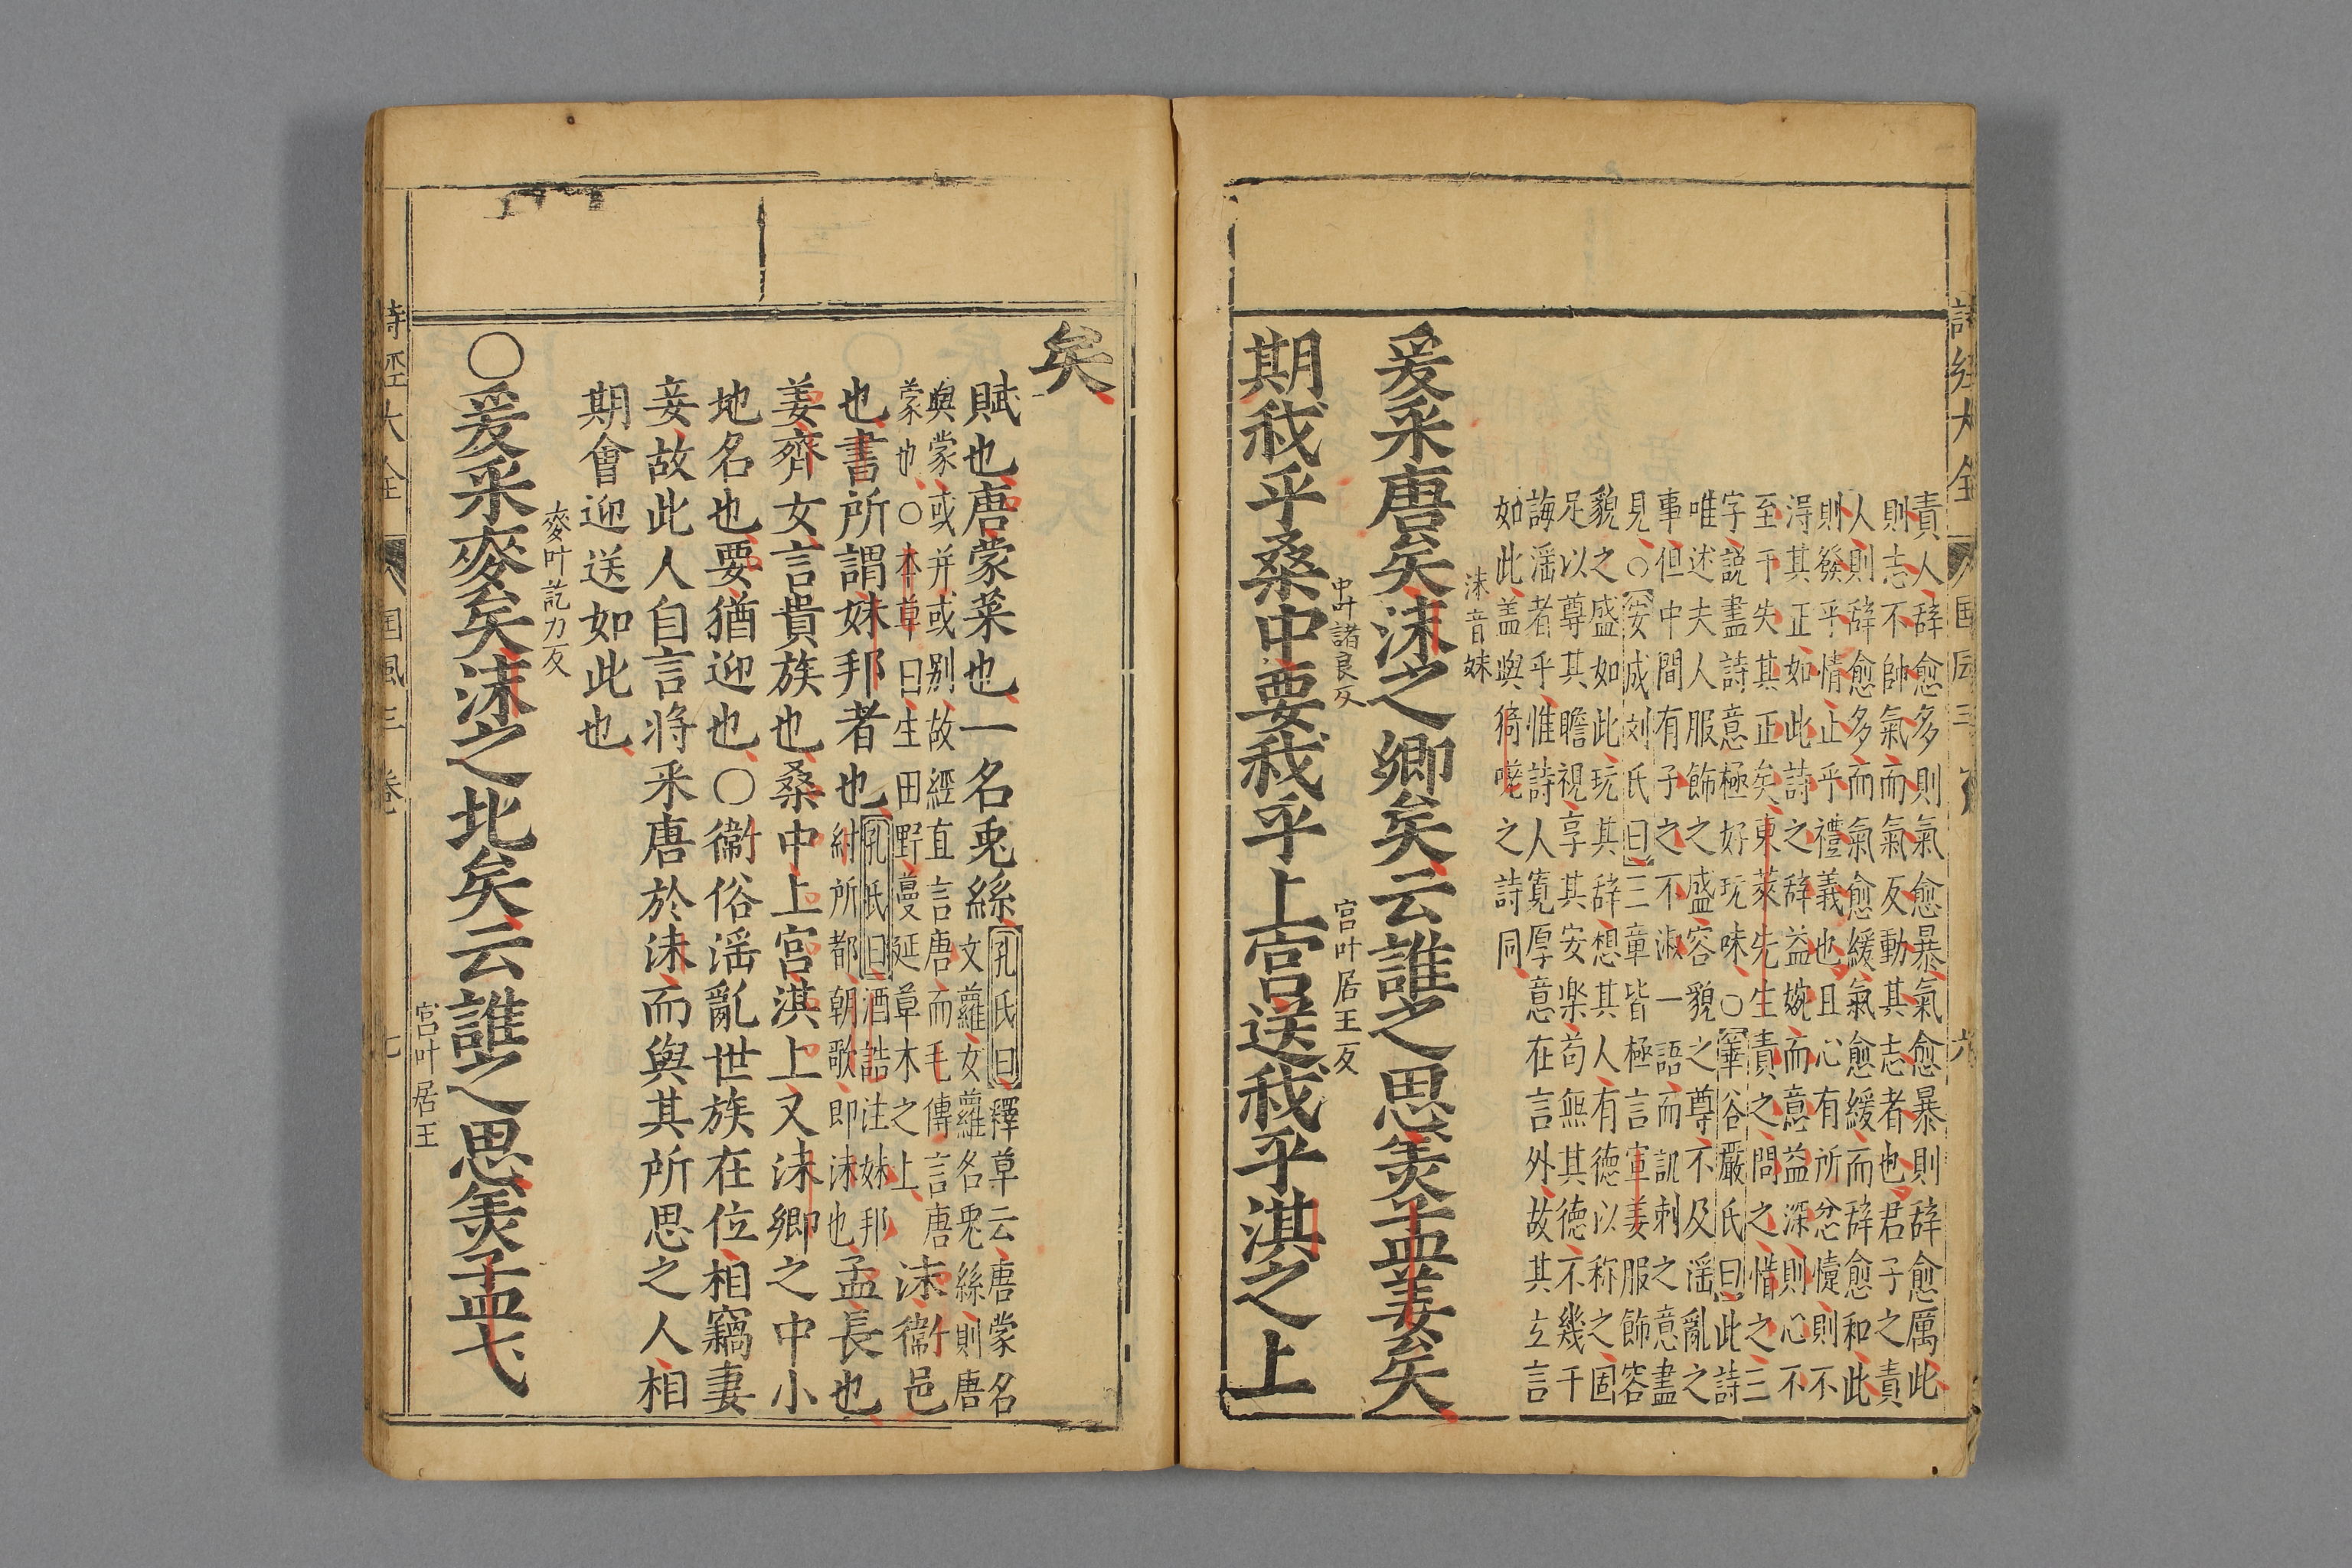 責人辞愈多則氣愈暴氣愈暴則辞愈厲此
則志不帥氣而氣反動其志者也君子之責
人則辞愈多而氣愈緩氣愈緩而辞愈和此
則發乎情止乎禮義也且心有所忿懥則不
淂其正如此詩之辞益婉而意益深則心不
至于失其正矣東萊先生責之問之惜之三
字説盡詩意極好玩味○華谷嚴氏曰此詩
唯述夫人服飾之盛容貌之尊不及滛亂之
事但中間有子之不淑一語而訊刺之意盡
見○安成刘氏曰三章皆極言宣姜服飾容
貌之盛如此玩其辞想其人有德以称之固
足以尊其瞻視享其安楽苟無其德不幾于
誨滛者乎惟詩人寬厚意在言外故其立言
如此盖與猗嗟之詩同
沬音妹
爰采唐矣沬之鄉矣云誰之思美孟姜矣
中叶諸良反 宫叶居王反
期我乎桑中要我乎上宫送我乎淇之上
詩經大全 国风三
矣
賦也唐蒙菜也一名兎絲孔氏曰釋草云唐蒙名
文蘿女蘿名兎絲則唐
與蒙或并或别故經直言唐而毛傳言唐
蒙也○本草曰生田野蔓延草木之上沬衞邑
也書所謂妹邦者也孔氏曰酒誥注妹邦
紂所都朝歌即沬也孟長也
姜齊女言貴族也桑中上宫淇上又沬鄉之中小
地名也要猶迎也○衞俗滛亂世族在位相竊妻
妾故此人自言将采唐於沬而與其所思之人相
期會迎送如此也
麥叶訖力反
○爰采麥矣沬之北矣云誰之思美孟弋
宫叶居王
詩經大全 国風三卷 七